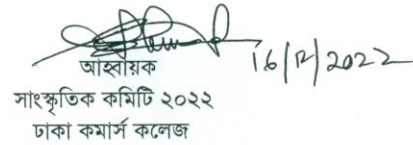 16/12/2022
আহ্বায়ক
সাংস্কৃতিক কমিটি ২০২২
ঢাকা কমার্স কলেজ